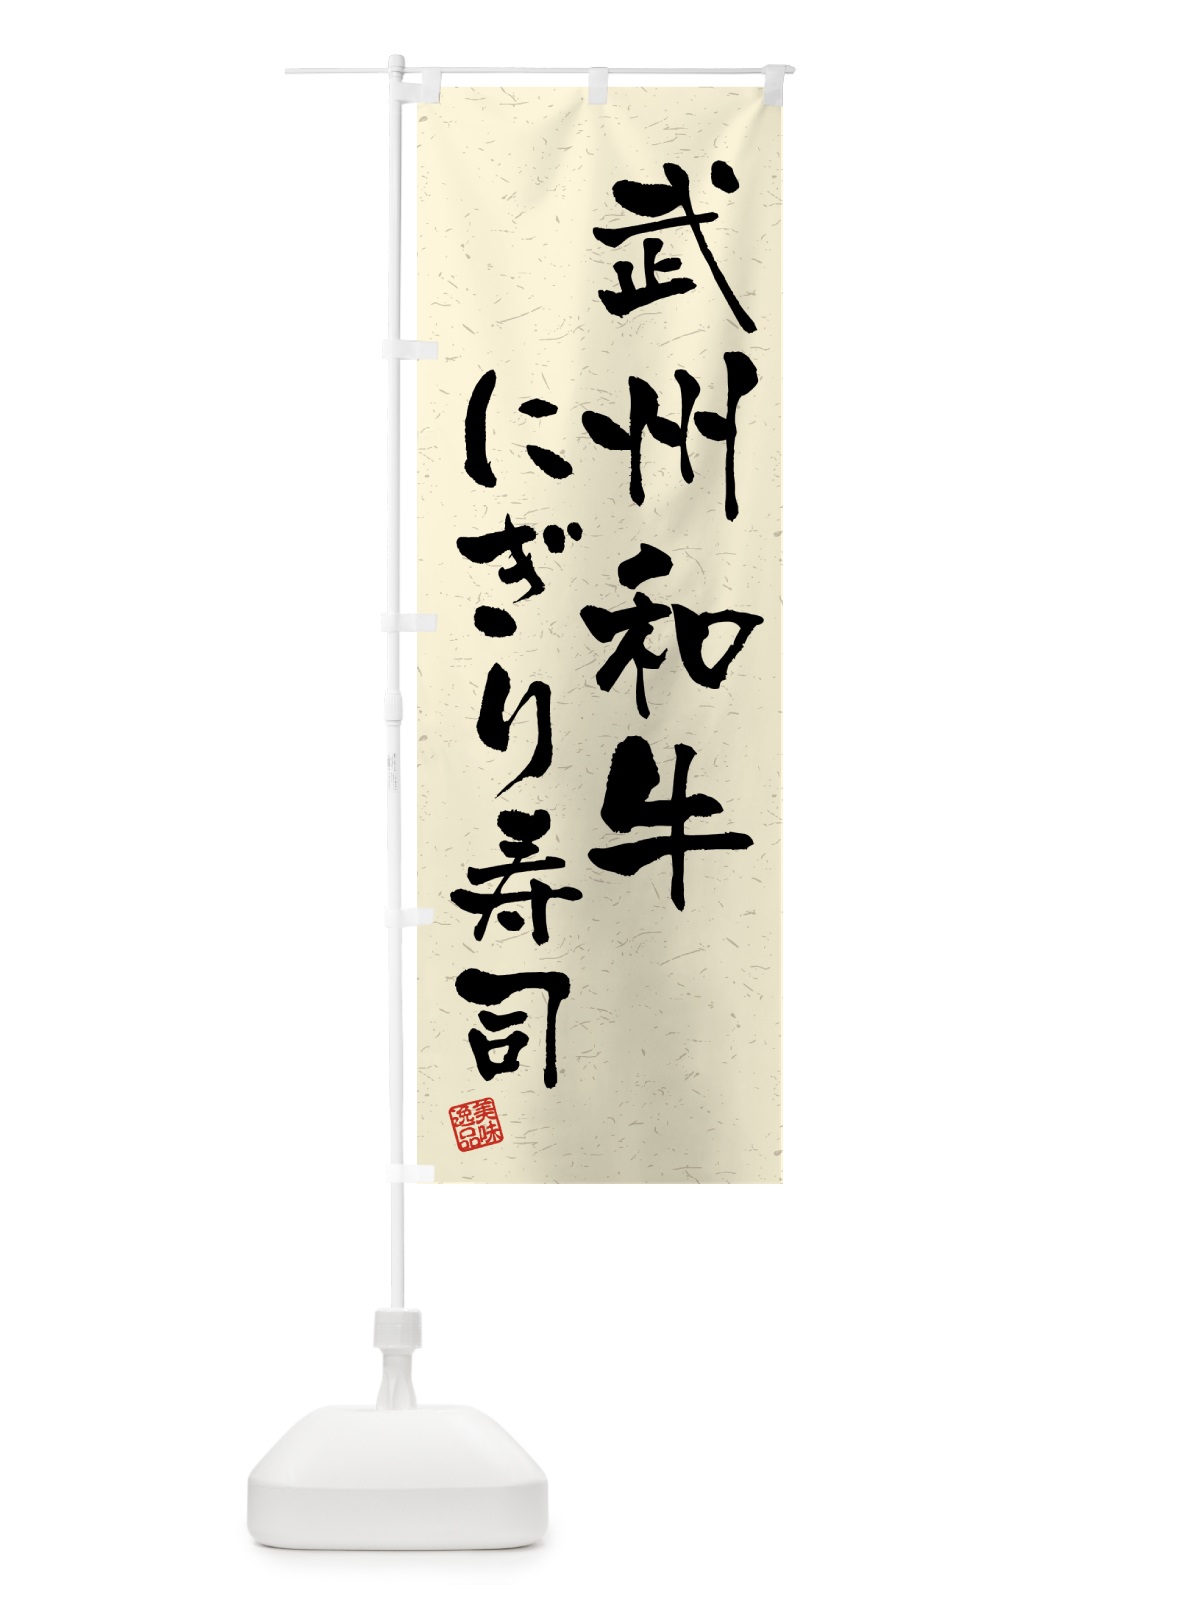 武州和牛
にぎり寿司
美味
逸品